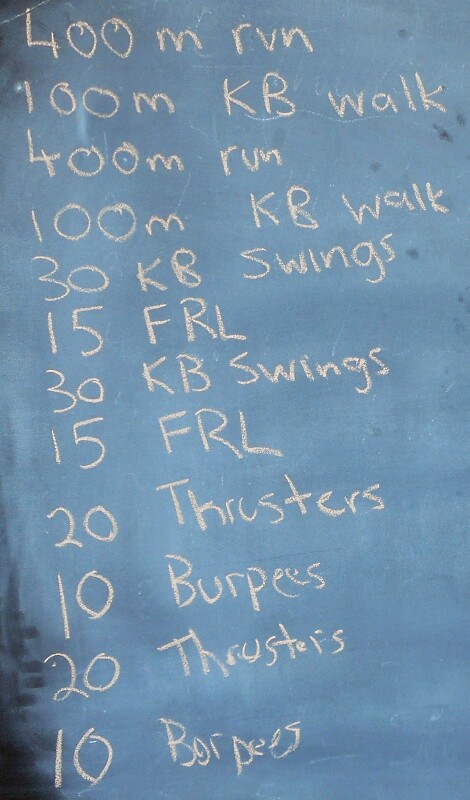 400 m run
100m KB walk
400m run
100m KB walk
30 KB Swings
15 FRL
30 KB Swings
15 FRL
20 Thrusters
10 Burpees
20 Thrusters
10 Borpees